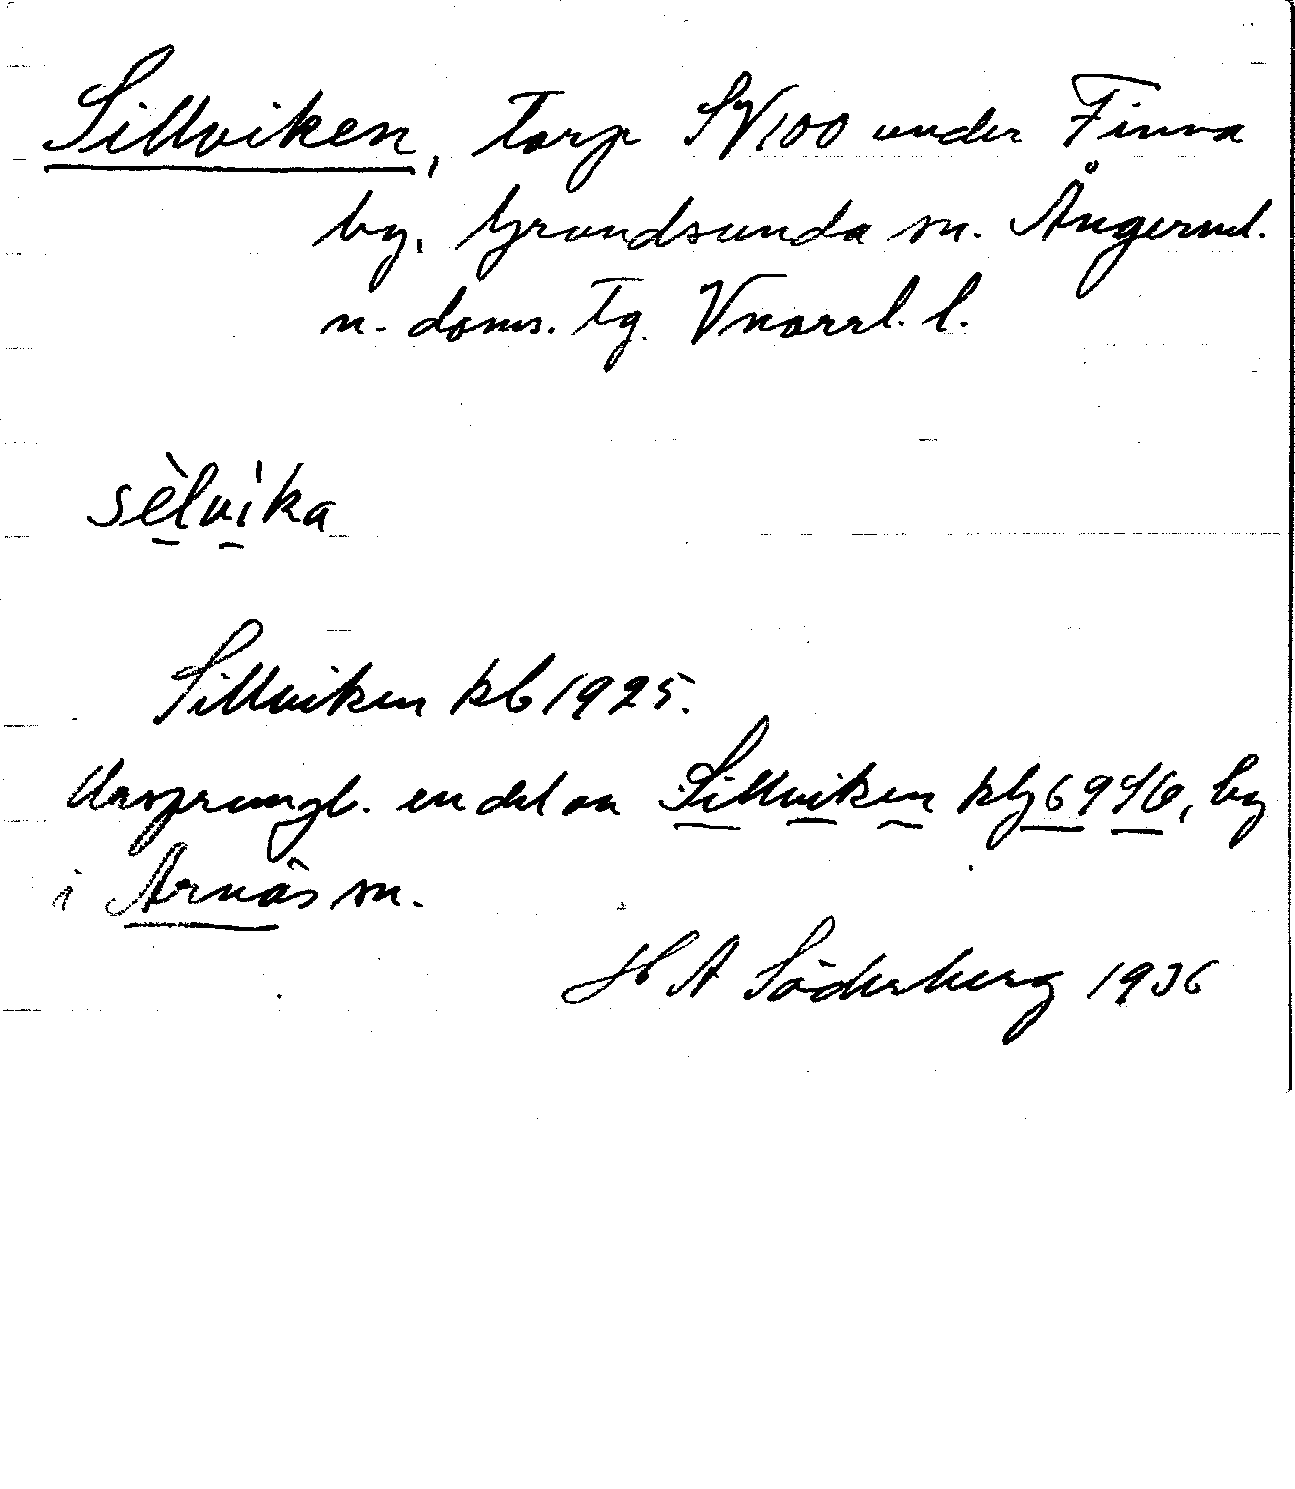 Sillviken, torp SV100 under Finna
by, Grundsunda sn. Ångerml.
n. doms. tg. Vnorrl. l.
sèlvika
Sillviken kb 1925.
Ursprungl. en del av Sillviken kbg, by
i Arnäs sn.
H A Söderberg 1936